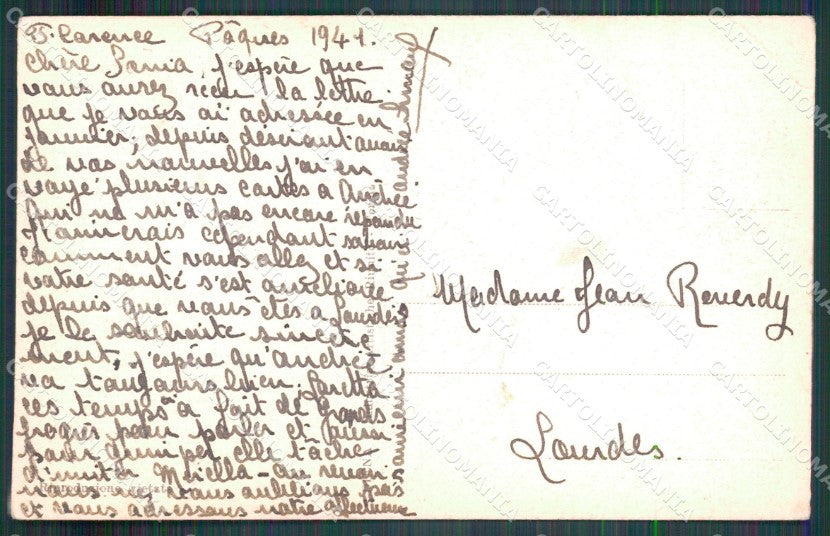 Florence Pâques 1941.
chère Sonia, j'espère que
vous aurez recu la lettre
que je vous ai adressée en
janvier, depuis desirant avoir
de vos nouvelles j'ai en
voyé plusieurs cartes a Andrée
qui ne m'a pas encore répondu
J'aimerais cependant savoir
comment vous allez et si
votre santé s'est améliorée
depuis que vous êtes a Lourdes
je le souhaite sincère
ment, j'espère qu'Andrée
va toujours bien, Loretta
ces temps a fait de grands
progrès pour parler et aussi
pour grimper, elle tâche
d'imiter Mirella - au revoir
nous ne vous oublions pas
et vous adressons notre affectueux
souvenir amis
Madame Jean Reverdy
Lourdes.
Riproduzione vietata
CARTOLINOMANIA